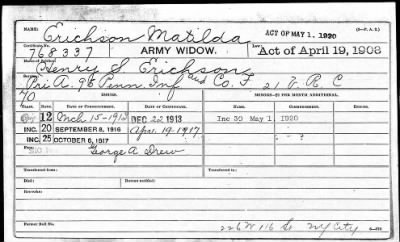 NAME: Erickson Matilda ACT OF MAY 1, 1920
Certificate No. 768337 ARMY WIDOW. Law: Act of April 19, 1908
Name of Soldier: Henry S Erickson
Pri A. 98 Penn Inf and Co. F 21 V. R. C
70 ISSUES. MINORS—$2 PER MONTH ADDITIONAL.
RATE. DATE OF COMMENCEMENT. DATE OF CERTIFICATE.
12 Mch 15-1913 DEC 22 1913 Inc 30 May 1, 1920
INC. 20 SEPTEMBER 8, 1916 Apr. 19-1917
INC. 25 OCTOBER 6, 1917
George A Drew
Transferred from: Transferred to:
Died: Date notified:
Remarks:
Former Roll No. 226 W 116 St NY City